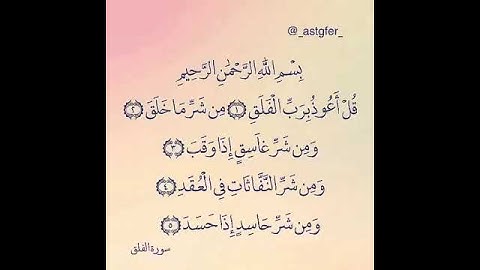 @_astgfer_
بِسْمِ اللَّهِ الرَّحْمَٰنِ الرَّحِيمِ
قُلْ أَعُوذُ بِرَبِّ الْفَلَقِ ۝١ مِن شَرِّ مَا خَلَقَ ۝٢
وَمِن شَرِّ غَاسِقٍ إِذَا وَقَبَ ۝٣
وَمِن شَرِّ النَّفَّاثَاتِ فِي الْعُقَدِ ۝٤
وَمِن شَرِّ حَاسِدٍ إِذَا حَسَدَ ۝٥
سورة الفلق